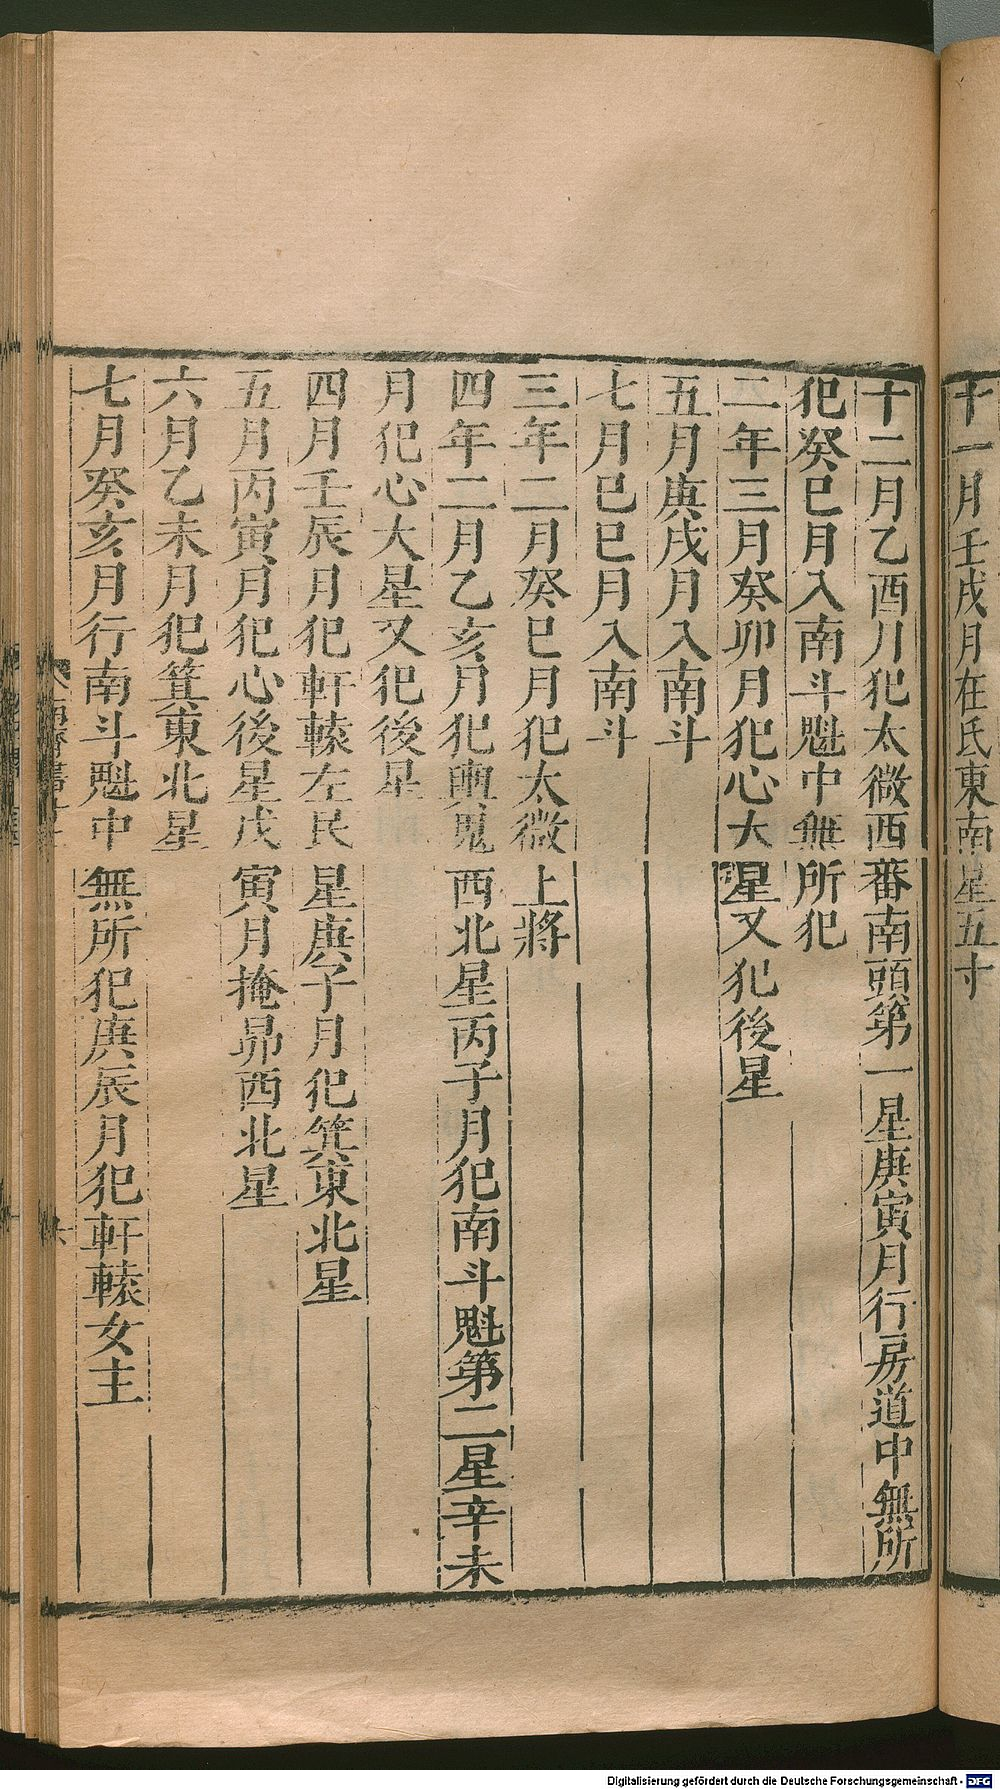 十一月壬戌月在氐東南星五寸
十二月乙酉月犯太微西蕃南頭第一星庚寅月行房道中無所
犯癸巳月入南斗魁中無所犯
二年三月癸卯月犯心大星又犯後星
五月庚戌月入南斗
七月己巳月入南斗
三年二月癸巳月犯太微上將
四年二月乙亥月犯輿鬼西北星丙子月犯南斗魁第二星辛未
月犯心大星又犯後星
四月壬辰月犯軒轅左民星庚子月犯箕東北星
五月丙寅月犯心後星戊寅月掩昴西北星
六月乙未月犯箕東北星
七月癸亥月行南斗魁中無所犯庚辰月犯軒轅女主
Digitalisierung gefördert durch die Deutsche Forschungsgemeinschaft - DFG